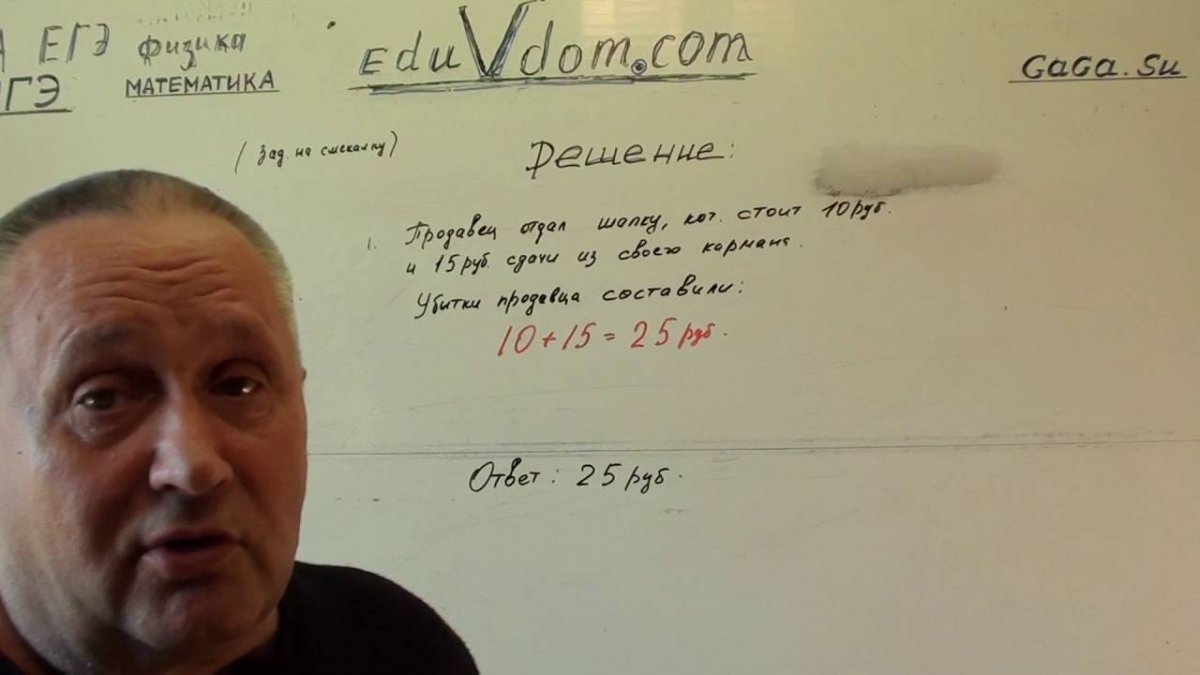 ЕГЭ физика
ГЭ МАТЕМАТИКА
EduVdom.com
GaGa.Su
(Зад. на смекалку)
Решение:
1. Продавец отдал шапку, кот. стоит 10 руб.
и 15 руб. сдачи из своего кармана.
Убытки продавца составили:
10 + 15 = 25 руб.
Ответ: 25 руб.